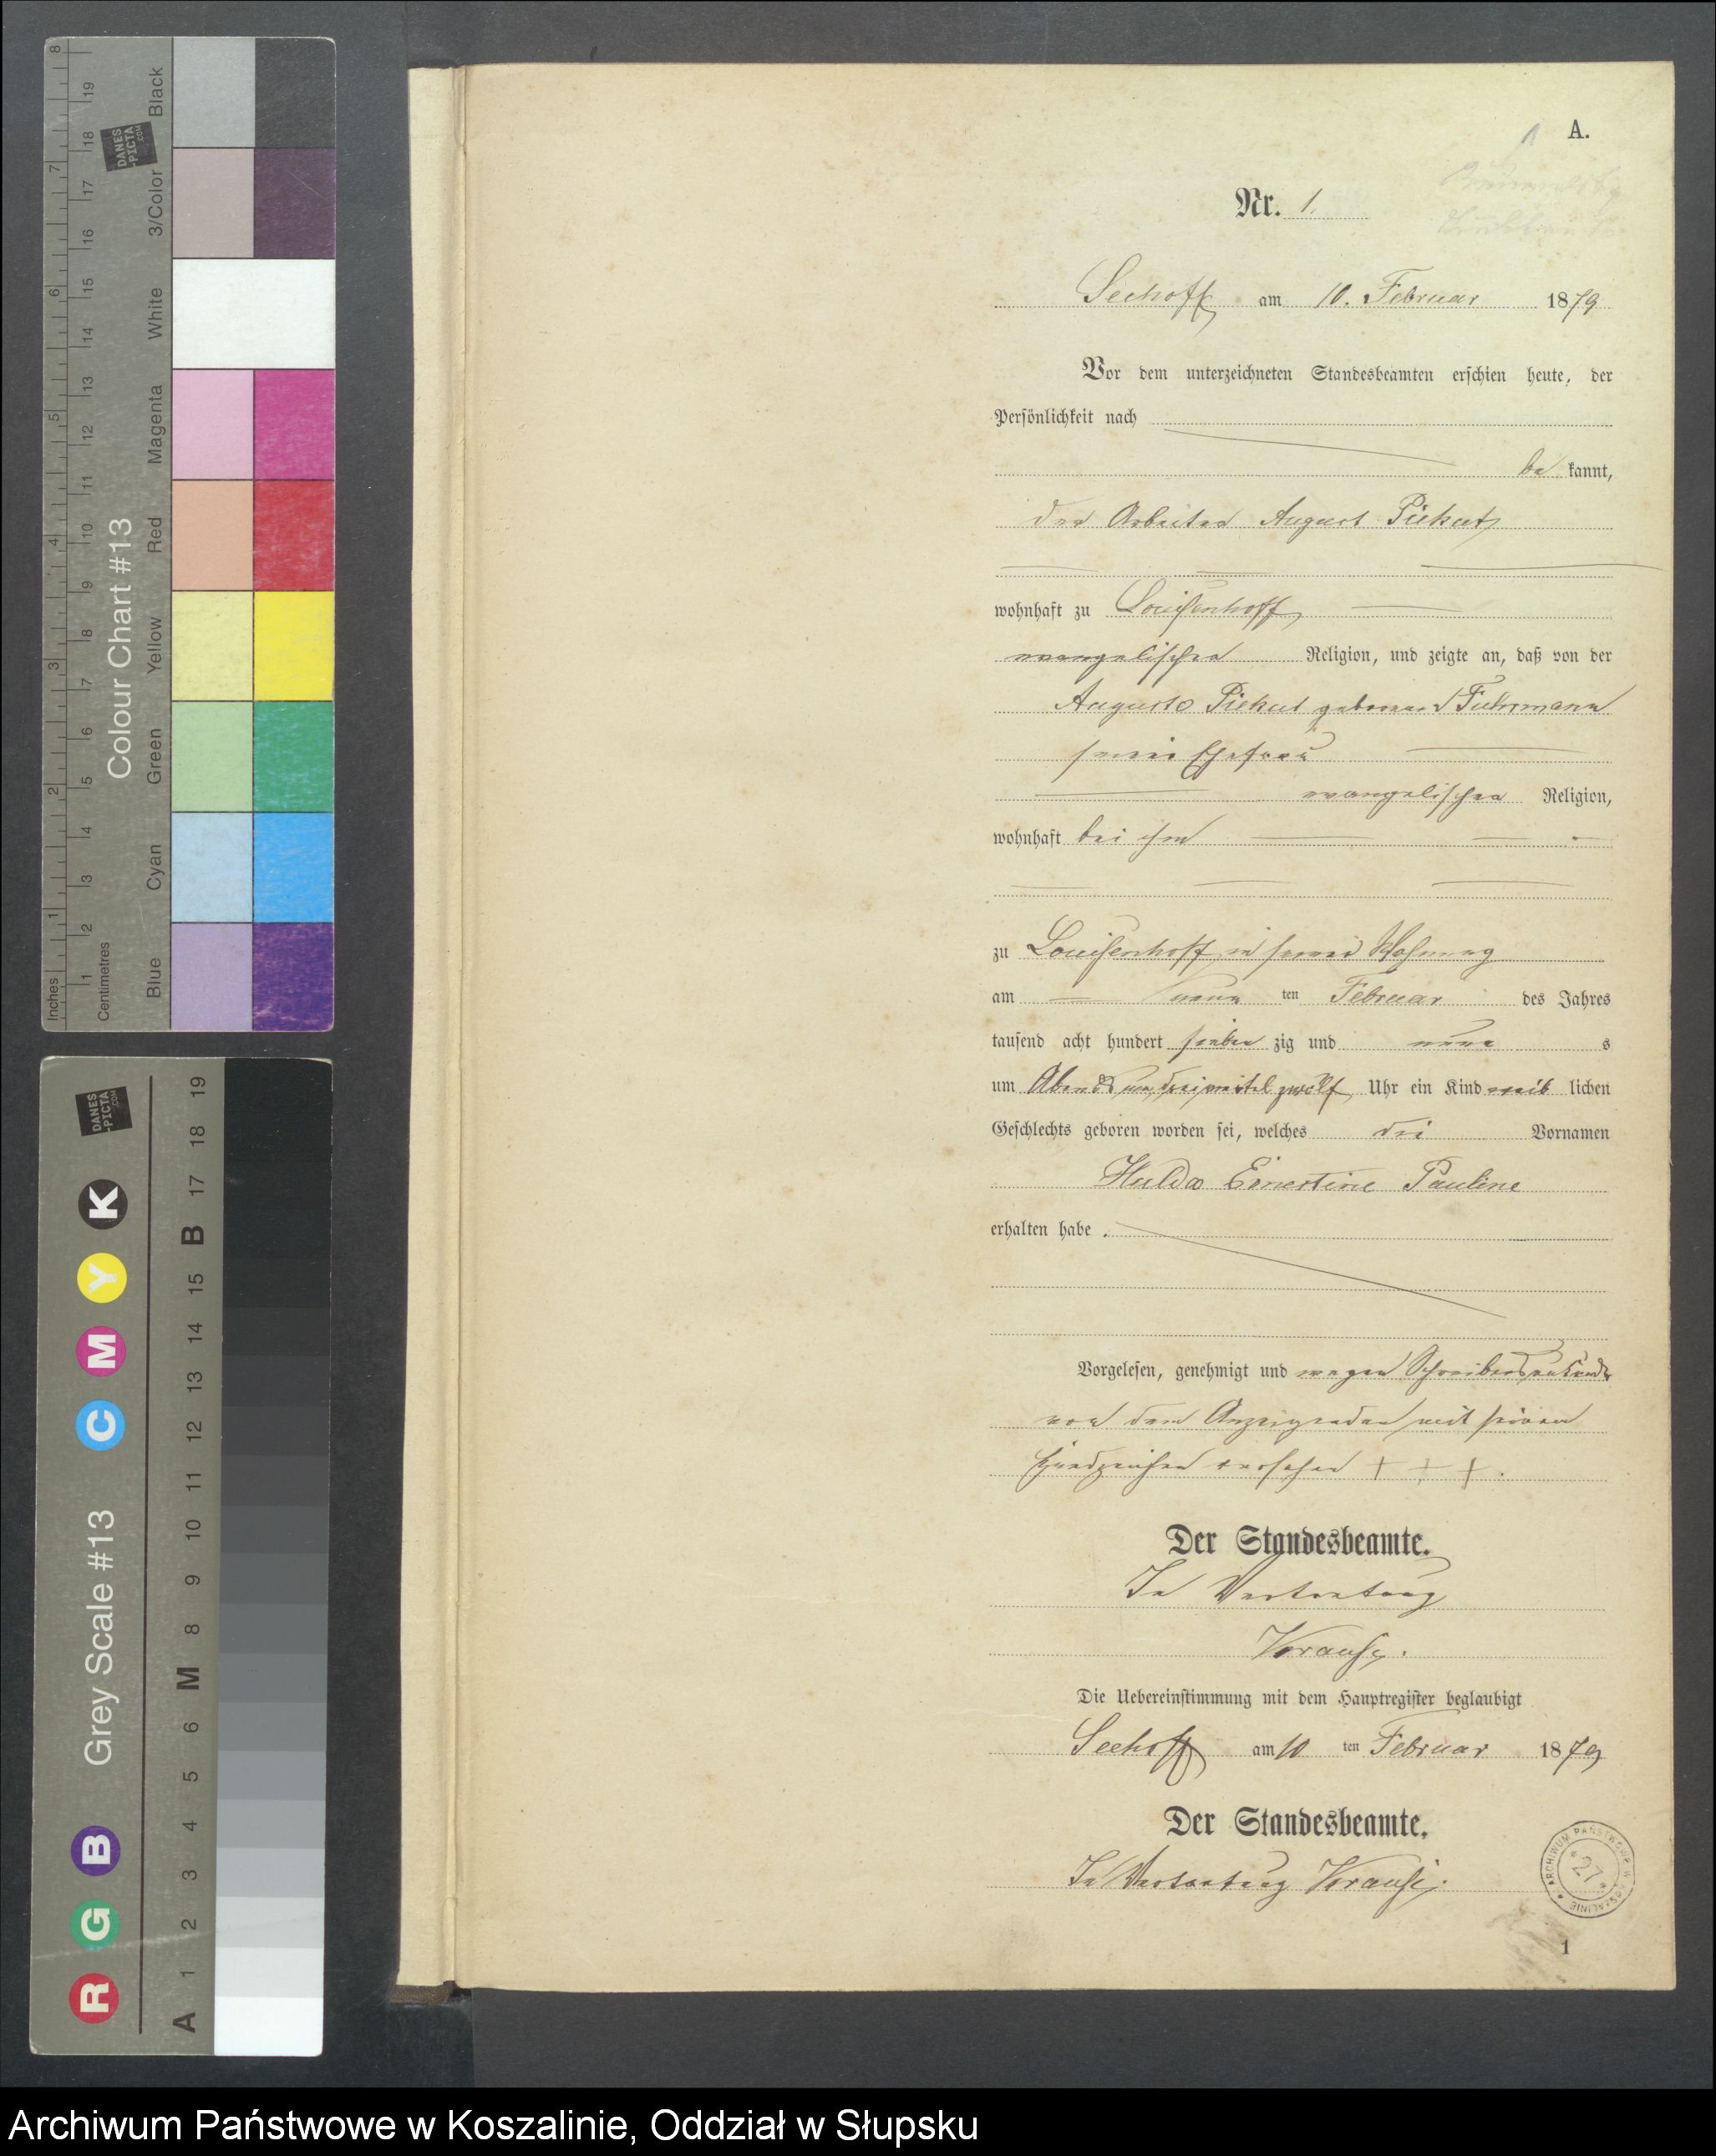 A.
Nr. 1.
Seehoff am 10. Februar 1879
Vor dem unterzeichneten Standesbeamten erschien heute, der
Persönlichkeit nach
be kannt,
der Arbeiter August Piekut
wohnhaft zu Louisenhoff
evangelischer Religion, und zeigte an, daß von der
Auguste Piekut geborene Fuhrmann
seine Ehefrau
evangelischer Religion,
wohnhaft bei ihm
zu Louisenhoff in seiner Wohnung
am neun ten Februar des Jahres
tausend acht hundert sieben zig und neun s
um Abends um dreiviertel zwölf Uhr ein Kind weib lichen
Geschlechts geboren worden sei, welches die Vornamen
Hulda Ernestine Pauline
erhalten habe.
Vorgelesen, genehmigt und wegen Schreibens
von dem Anzeigenden mit seinem
Handzeichen versehen + + +.
Der Standesbeamte.
In Vertretung
Krause.
Die Uebereinstimmung mit dem Hauptregister beglaubigt
Seehoff am 10 ten Februar 1879
Der Standesbeamte.
In Vertretung Krause.
ARCHIWUM PAŃSTWOWE W KOSZALINIE
27
1
Inches 1 2 3 4 5 6 7 8
Centimetres 1 2 3 4 5 6 7 8 9 10 11 12 13 14 15 16 17 18 19
Colour Chart #13
Blue Cyan Green Yellow Red Magenta White 3/Color Black
DANES
-PICTA
.COM
Grey Scale #13
R G B C M Y K
A 1 2 3 4 5 6 M 8 9 10 11 12 13 14 15 B 17 18 19
DANES
-PICTA
.COM
Archiwum Państwowe w Koszalinie, Oddział w Słupsku